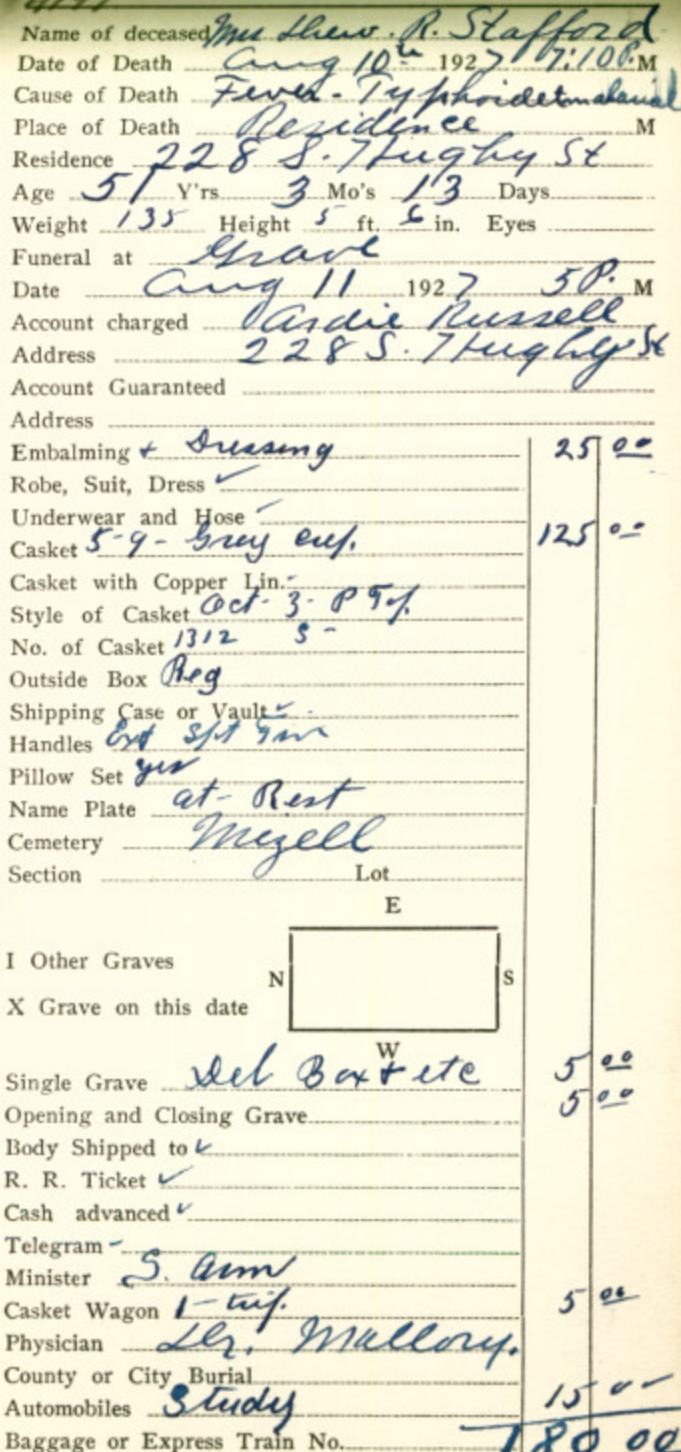 Name of deceased Mrs R. Stafford
Date of Death Aug 10th 1927 7:10 P. M
Cause of Death Fever - Typhoidetmalarial
Place of Death Residence M
Residence 228 S. Hughy St
Age 51 Y'rs 3 Mo's 13 Days
Weight 135 Height 5 ft. 6 in. Eyes
Funeral at Grave
Date Aug 11 1927 5 P. M
Account charged Ardie Russell
Address 228 S. Hughy St
Account Guaranteed
Address
Embalming + Dressing 25 00
Robe, Suit, Dress ✓
Underwear and Hose
Casket 5-9- Grey 125 00
Casket with Copper Lin. -
Style of Casket Oct- 3- P
No. of Casket 1312 S -
Outside Box Reg
Shipping Case or Vault ✓
Handles Ext
Pillow Set yes
Name Plate at- Rest
Cemetery Mizell
Section Lot
E
I Other Graves
N S
X Grave on this date
W
Single Grave Del Box + etc 5 00
Opening and Closing Grave 5 00
Body Shipped to ✓
R. R. Ticket ✓
Cash advanced ✓
Telegram -
Minister S. Arm
Casket Wagon 1- trip. 5 00
Physician Dr. Mallory.
County or City Burial
Automobiles Study 15 00
Baggage or Express Train No. 180 00